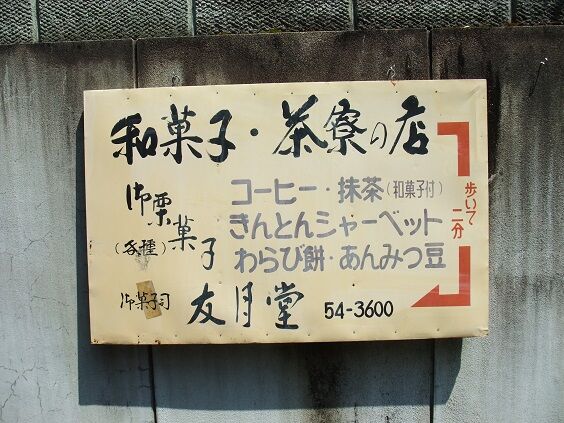 和菓子・茶寮の店
御栗菓子
(各種)
コーヒー・抹茶(和菓子付)
きんとんシャーベット
わらび餅・あんみつ豆
歩いて
二分
御菓子司 友月堂 54-3600